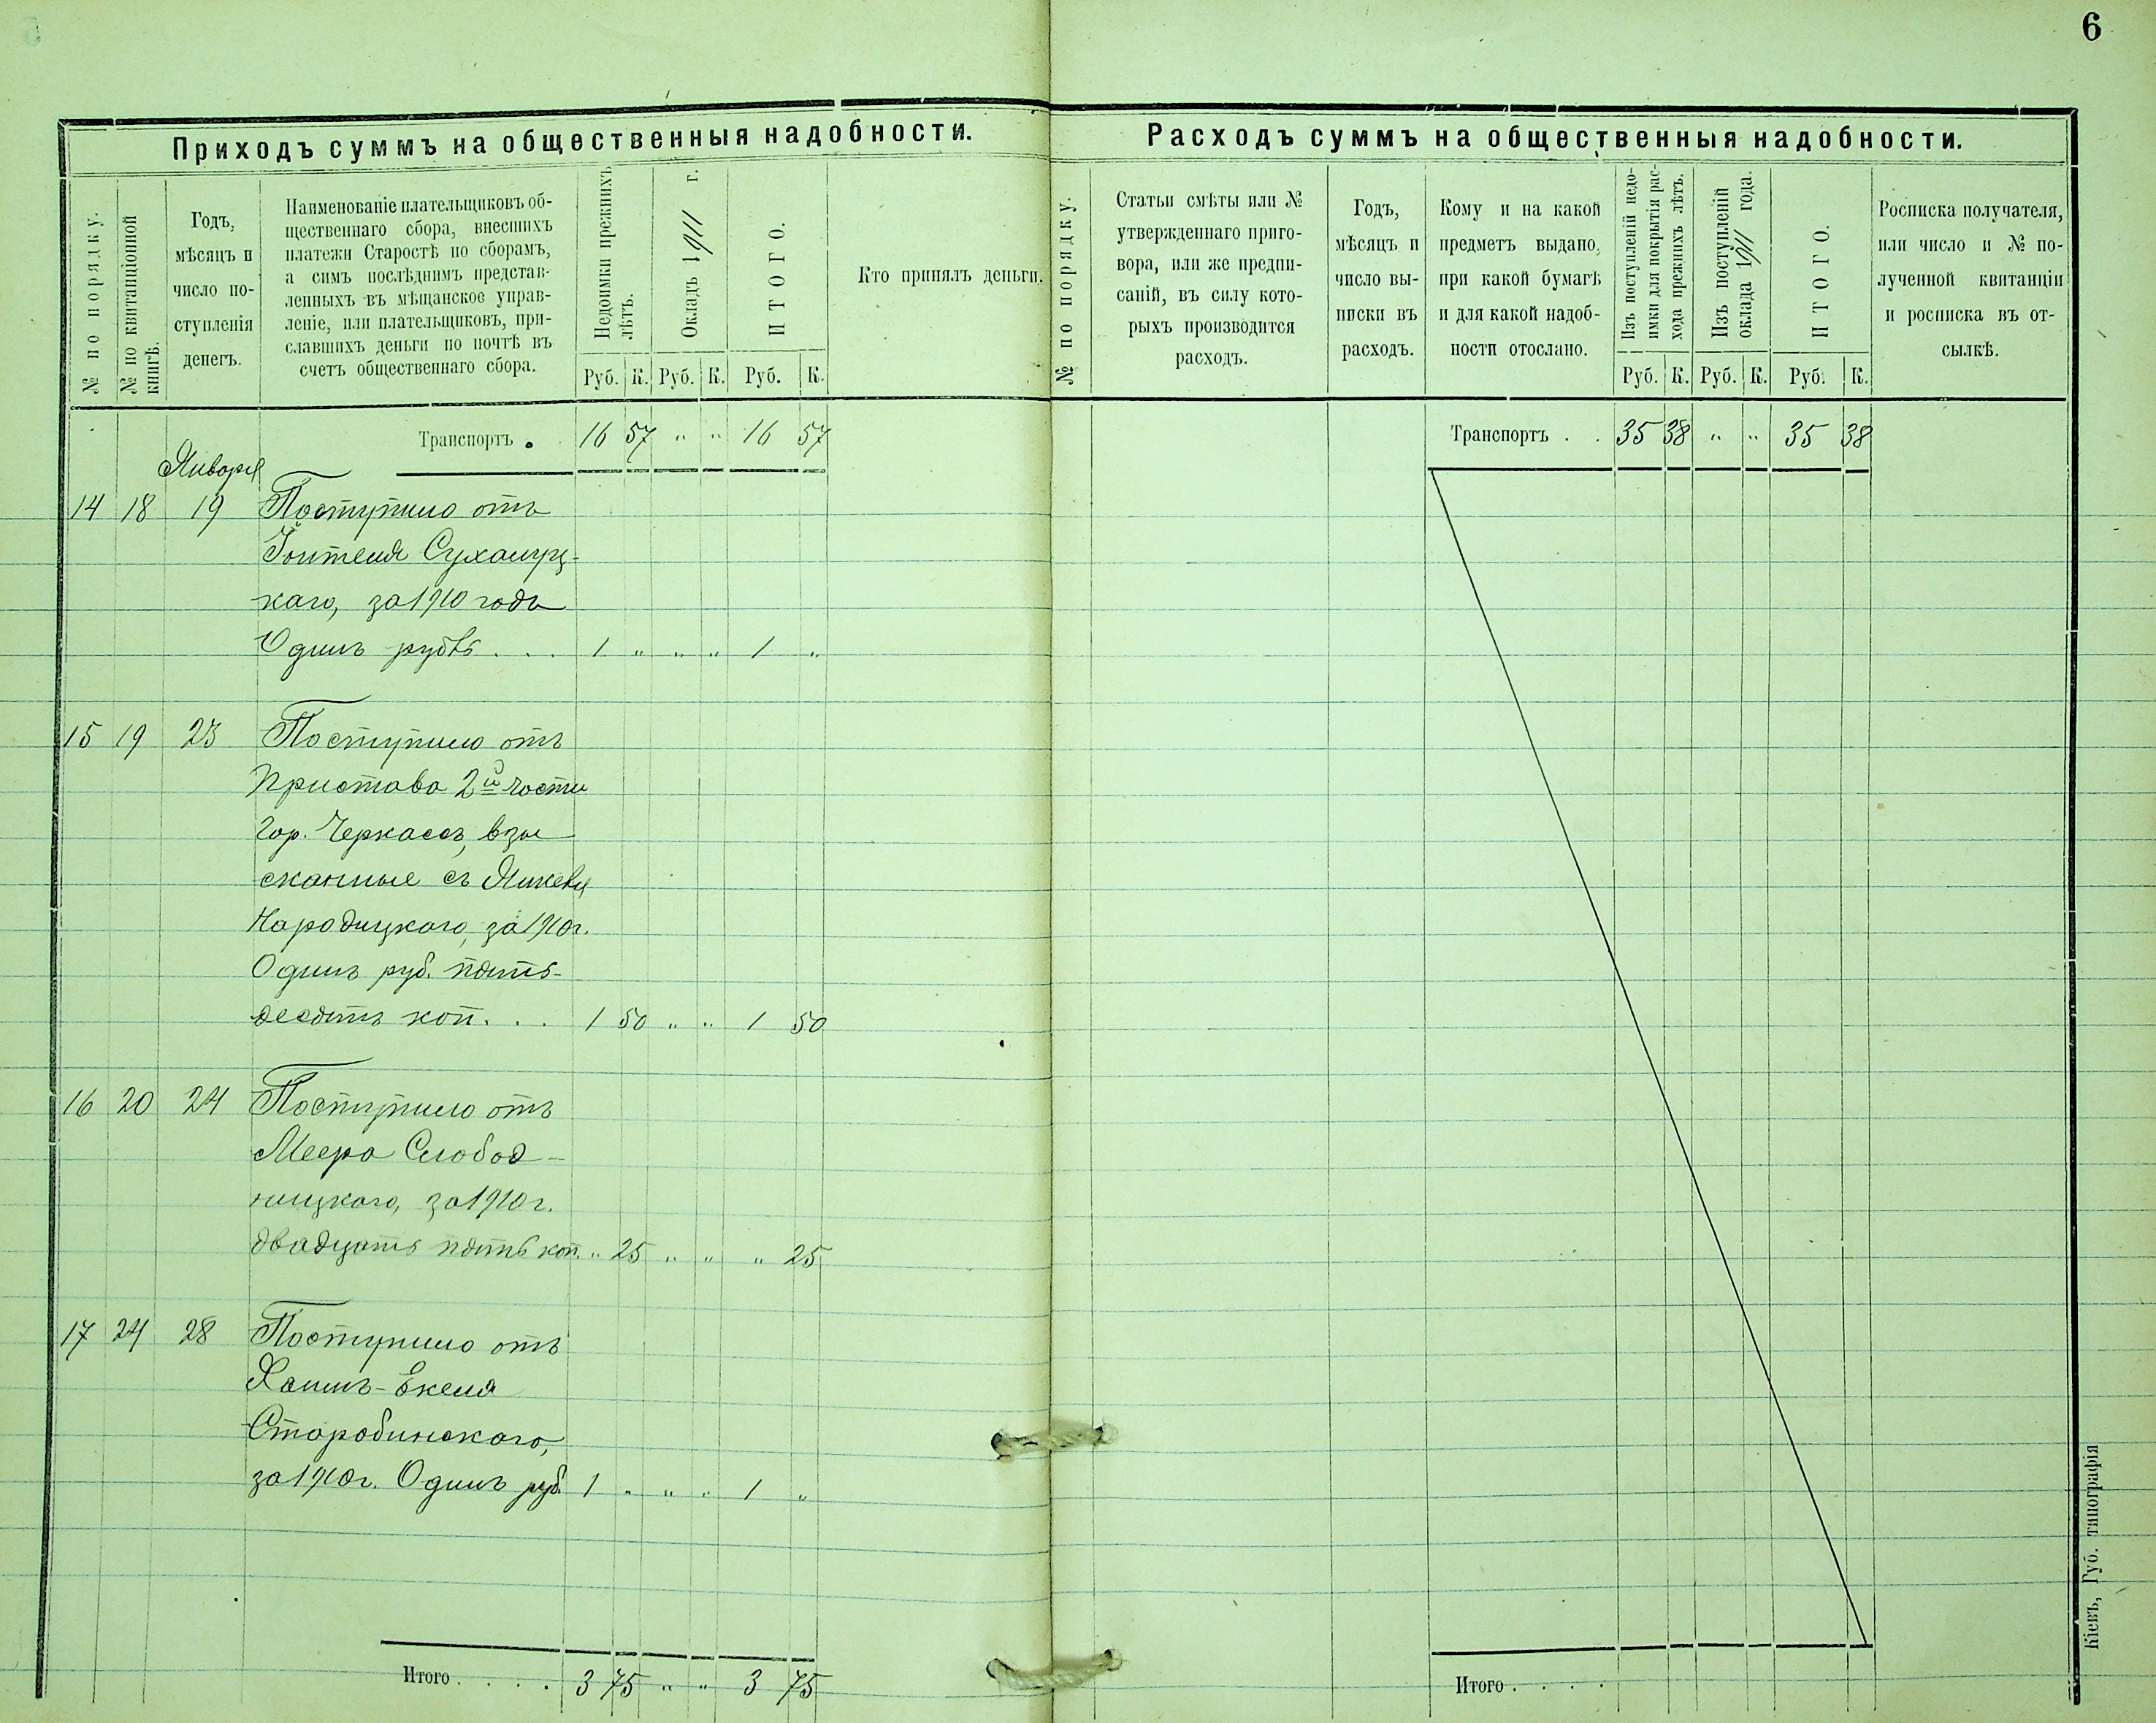 6
Приходъ суммъ на общественныя надобности.
№ по порядку.
№ по квитанціонной
книгѣ.
Годъ,
мѣсяцъ и
число по-
ступленія
денегъ.
Наименованіе плательщиковъ об-
щественнаго сбора, внесшихъ
платежи Старостѣ по сборамъ,
а симъ послѣднимъ представ-
ленныхъ въ мѣщанское управ-
леніе, или плательщиковъ, при-
славшихъ деньги по почтѣ въ
счетъ общественнаго сбора.
Недоимки прежнихъ
лѣтъ.
Окладъ 1911 г.
ИТОГО.
Руб. К. Руб. К. Руб. К.
Кто принялъ деньги.
Транспортъ . 16 57 " " 16 57
Января
14 18 19 Поступило отъ
Сухалуц-
каго, за 1910 годъ
Одинъ рубль . . . 1 " " " 1 "
15 19 23 Поступило отъ
Пристава 2й части
Гор. Черкассъ, взы
сканные съ Янкеля
Народицкаго, за 1910г.
Одинъ руб. пять-
десятъ коп. . . 1 50 " " 1 50
16 20 24 Поступило отъ
Меера Слобод-
ницкаго, за 1910 г.
двадцать пять коп. " 25 " " " 25
17 24 28 Поступило отъ
Хаимъ-Екеля
Старобинскаго,
за 1910г. Одинъ руб. 1 " " " 1 "
Итого . . . . 3 75 " " 3 75
Расходъ суммъ на общественныя надобности.
№ по порядку.
Статьи смѣты или №
утвержденнаго приго-
вора, или же предпи-
саній, въ силу кото-
рыхъ производится
расходъ.
Годъ,
мѣсяцъ и
число вы-
писки въ
расходъ.
Кому и на какой
предметъ выдано,
при какой бумагѣ
и для какой надоб-
ности отослано.
Изъ поступленій недо-
имки для покрытія рас-
хода прежнихъ лѣтъ.
Изъ поступленій
оклада 1911 года.
ИТОГО.
Руб. К. Руб. К. Руб. К.
Росписка получателя,
или число и № по-
лученной квитанціи
и росписка въ от-
сылкѣ.
Транспортъ . . 35 38 " " 35 38
Итого . . . .
Кіевъ, Губ. типографія